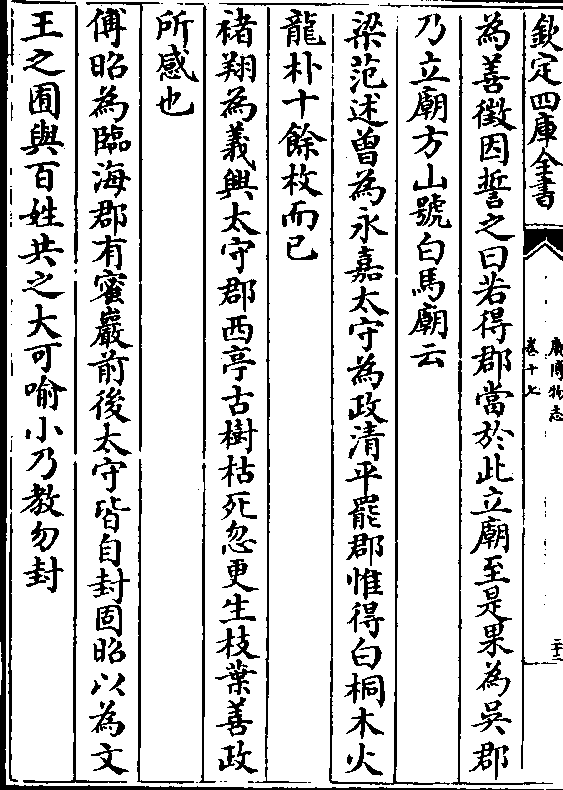 欽定四庫全書
廣博物志
卷十七
二十三
為善徵因誓之曰若得郡當於此立廟至是果為吳郡
乃立廟方山號白馬廟云
梁范述曾為永嘉太守為政清平罷郡惟得白桐木火
龍朴十餘枚而已
褚翔為義興太守郡西亭古樹枯死忽更生枝葉善政
所感也
傅昭為臨海郡有蜜巖前後太守皆自封固昭以為文
王之囿與百姓共之大可喻小乃教勿封